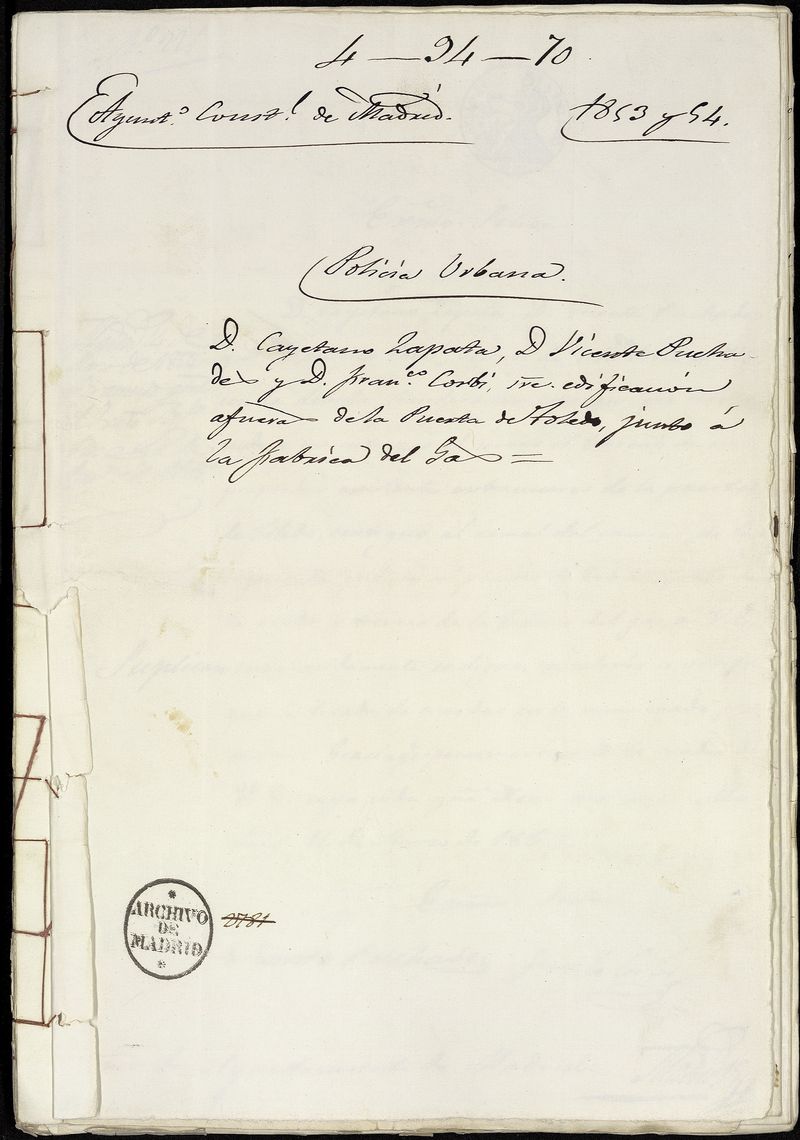 4—94—70
Ayunt.º Const.l de Madrid. 1853 y 54.
Policia Urbana.
D. Cayetano Zapata, D Vicente Pucha-
des y D. Fran.co Corbi, sre. edificacion
afueras de la Puerta de Toledo, junto á
la fabrica del Gas =
ARCHIVO
DE
MADRID